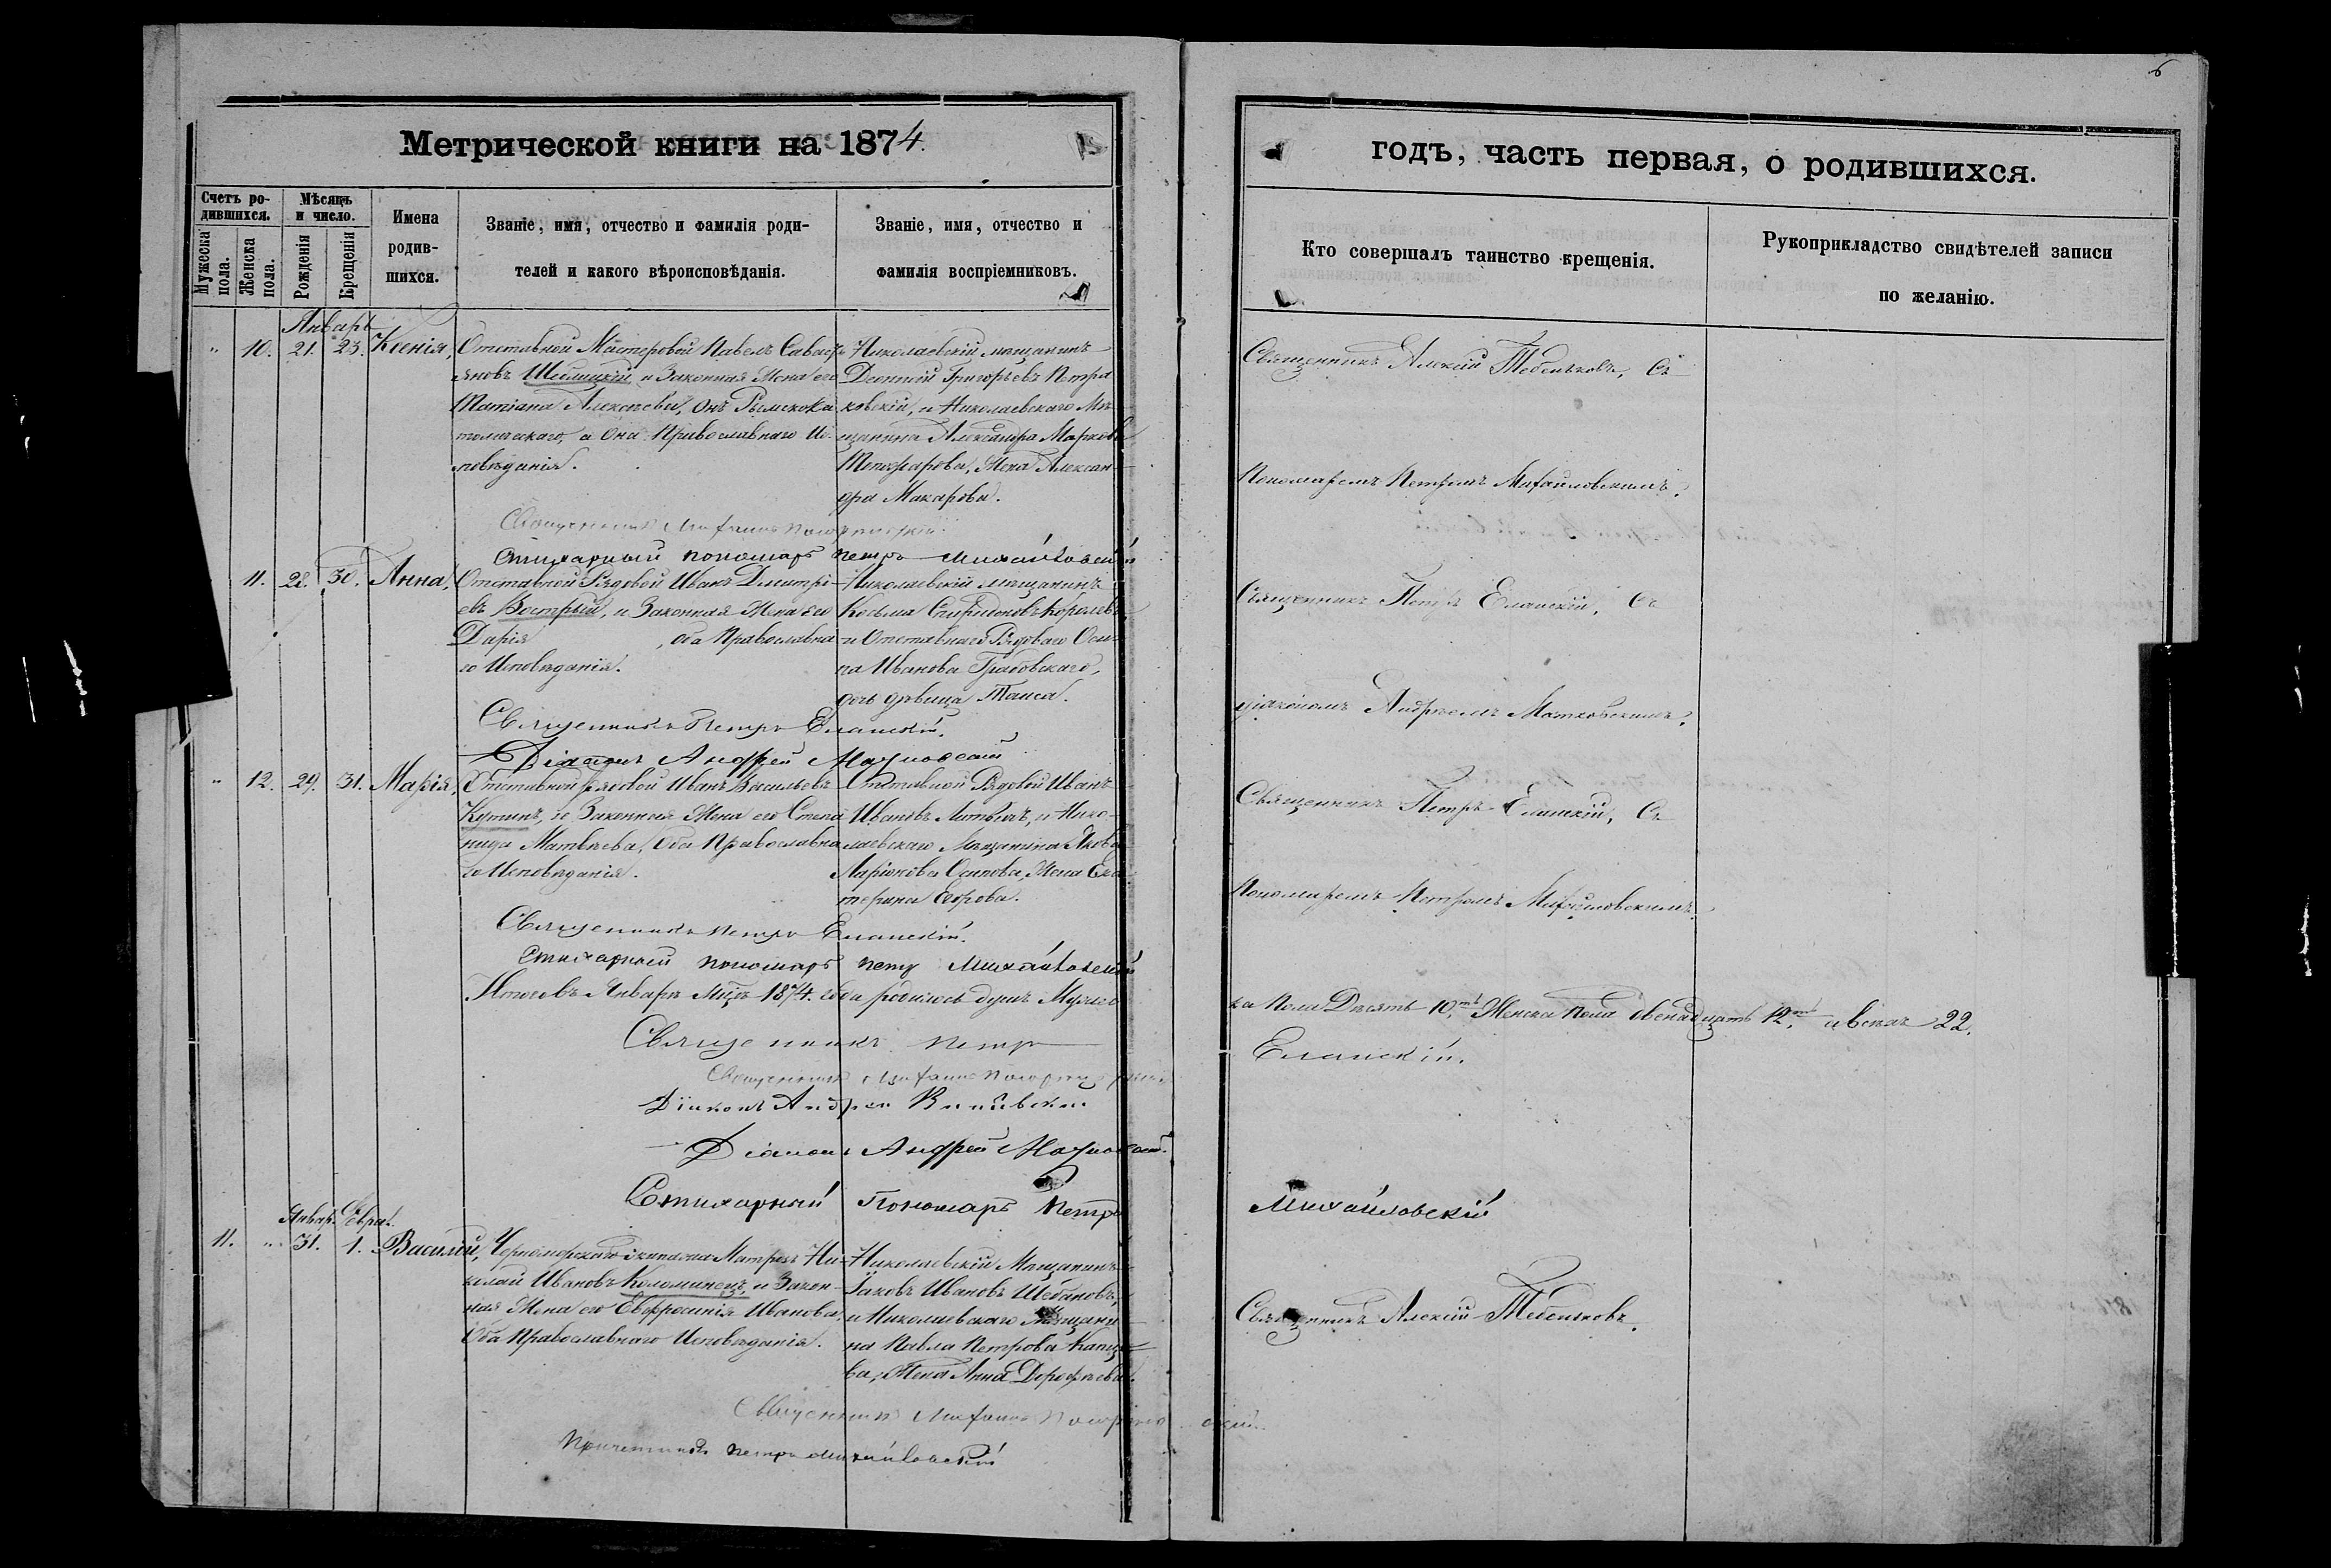 6
Метрической книги на 1874.
годъ, часть первая, о родившихся.
Счетъ ро-
дившихся.
Мужеска пола.
Женска пола.
Мѣсяцъ
и число.
Рожденія
Крещенія
Имена
родив-
шихся.
Званіе, имя, отчество и фамилія роди-
телей и какого вѣроисповѣданія.
Званіе, имя, отчество и
фамилія воспріемниковъ.
Кто совершалъ таинство крещенія.
Рукоприкладство свидѣтелей записи
по желанію.
Январь
" 10. 21. 23. Ксенія,
Отставной Мастеровой Павелъ Савасть
яновъ и Законная Жена его
Татіана Алексѣева, Онъ Римскока
толическаго, а Она Православнаго Ис
повѣданія.
Николаевскій мѣщанинъ
Григорьевъ Петра
ковскій, и Николаевскаго Мѣ
щанина Александра Марков
Жена Алексан
дра Макарова.
Священникъ Алексій Тебеньковъ, Съ
Пономаремъ Петромъ Михайловскимъ.
Священникъ
Стихарный пономарь Петръ Михайловскій
11. 28. 30. Анна,
Отставной Рядовой Иванъ Дмитрі
евъ Вострый, и Законная Жена его
Дарія , оба Православна
го Исповѣданія.
Николаевскій мѣщанинъ
Косьма Спиридоновъ Королевъ
и Отставнаго Рядоваго Оси
па Иванова Грабовскаго,
дочь дѣвица Таиса.
Священникъ Петръ Еланскій, Съ
діакономъ Андреемъ
Священникъ Петръ Еланскій.
Діаконъ Андрей
" 12. 29. 31. Марія,
Отставной рядовой Иванъ Васильевъ
Кутинъ, и Законная Жена его Степа
нида Матвѣева, Оба Православна
го Исповѣданія.
Отставной Рядовой Иванъ
Ивановъ Литвинъ, и Нико
лаевскаго Мѣщанина Якова
Ларіонова Осипова, Жена Ека
терина
Священникъ Петръ Еланскій, Съ
Пономаремъ Петромъ Михайловскимъ
Священникъ Петръ Еланскій.
Стихарный пономарь Петръ Михайловскій
Итого въ Январѣ Мцѣ 1874. года родилось душъ Мужес
ка Пола Десять 10.ть Женска Пола двенадцать 12.ть а всехъ 22.
Священникъ Петръ
Еланскій.
Священникъ
Діаконъ Андрей
Діаконъ Андрей
Стихарный Пономарь Петръ
Михайловскій
Январ. Февра.
11. " 31. 1. Василій,
Черноморскаго Экипажа Матросъ Ни
колай Ивановъ Коломиецъ, и Закон
ная Жена его Евфросинія Иванова
Оба Православнаго Исповѣданія.
Николаевскій Мѣщанинъ
Іаковъ Ивановъ Шебановъ,
и Николаевскаго Мѣщани
на Павла Петрова
ва, Жена Анна Дорофѣева.
Священникъ Алексій Тебеньковъ.
Священникъ
Причетникъ Петръ Михайловскій